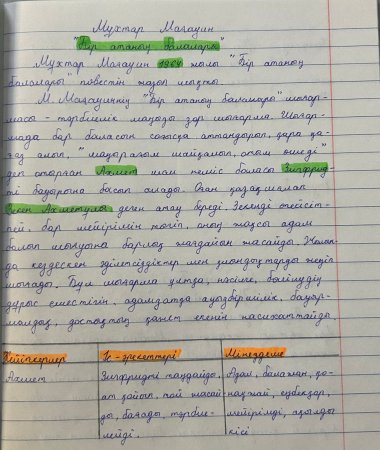 Мұхтар Мағауин
"Бір атаның балалары"
Мұхтар Мағауин 1964 жылы "Бір атаның
балалары" повестін жазып шықты.
М. Мағауиннің "Бір атаның балалары" шығар-
масы - тәрбиелік маңызы зор шығарма. Шығар-
мада бар баласын соғысқа аттандырып, қара қа-
ғаз алып, "шаңырағым шайқалып, отым өшеді"
деп отырған Ахмет шал неміс баласы Зигфрид-
ті бауырына басып алады. Оған қазақшалап
Ахметұлы деген атау береді. Зекенді жетісіт-
пей, бар мейірімін төгіп, оның жақсы адам
болып шығуына барлық жағдайын жасайды. Жолын-
да кездескен әділетсіздіктер мен қиындықтарды жеңіп
шығады. Бұл шығарма ұлтқа, нәсілге, бөлінудің
дұрыс еместігін, адамзатқа ауызбіршілік, бауыр-
малдық, достықтың қажет екенін насихаттайды.
Кейіпкерлер Іс-әрекеттері Мінездеме
Ахмет Зигфридті таңдайды, Адал, балажан, қа-
ат қойып, той жасай- нағжай, еңбекқор,
ды, бағады, тәрбие- мейірімді, ақылды
лейді. кісі